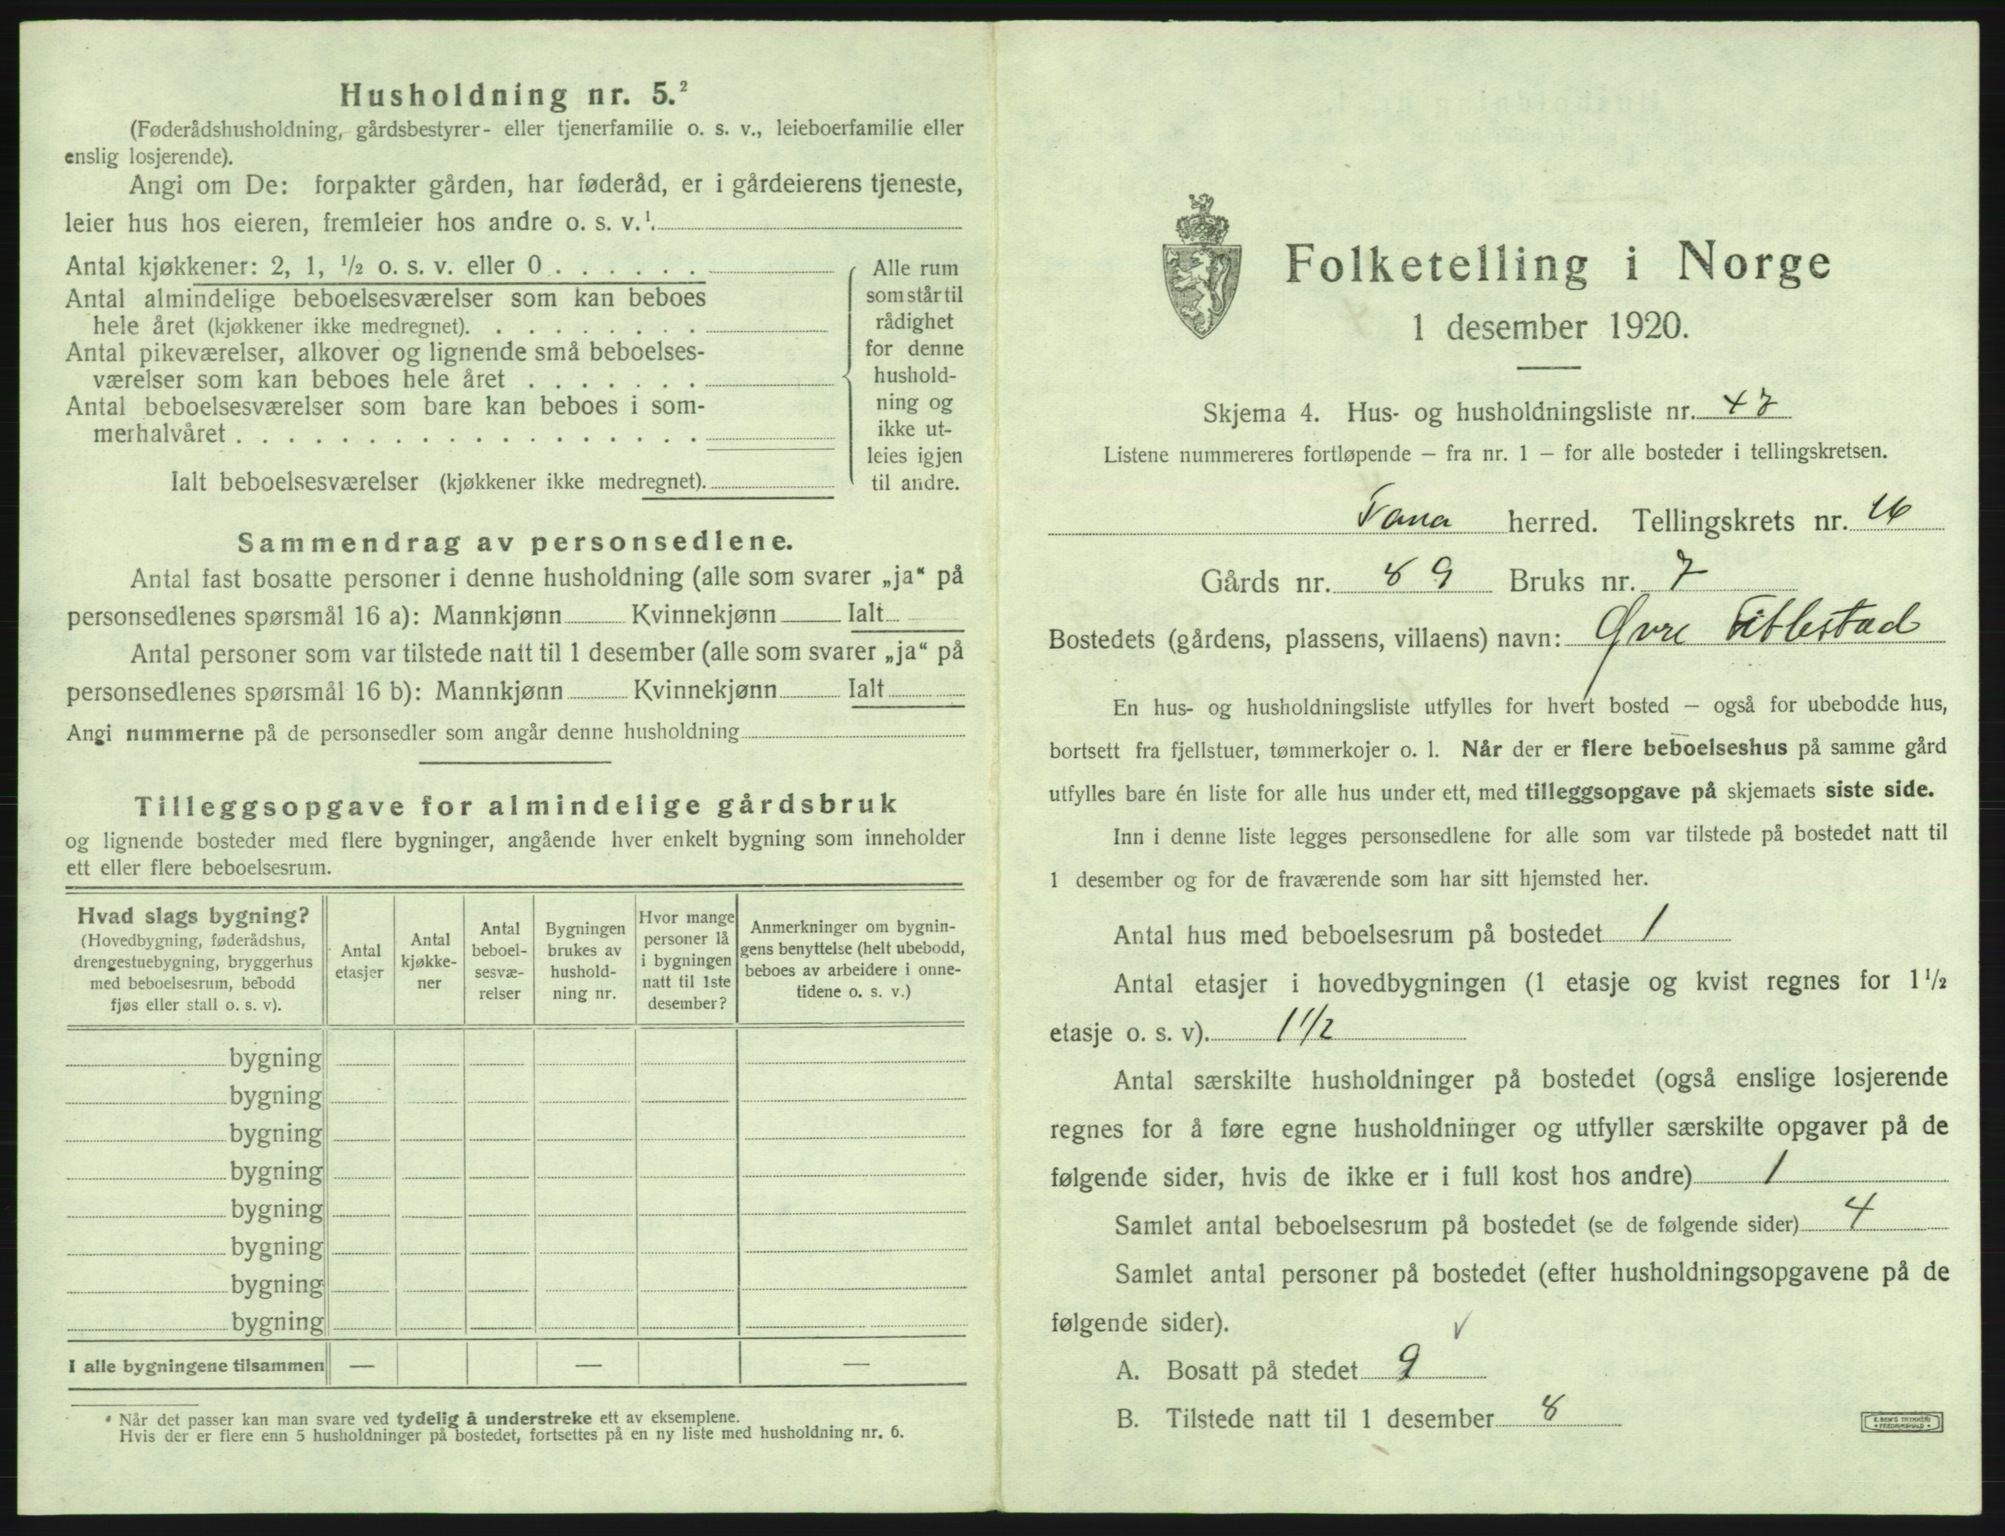 Husholdning nr. 5.²
(Føderådshusholdning, gårdsbestyrer- eller tjenerfamilie o. s. v., leieboerfamilie eller
enslig losjerende).
Angi om De: forpakter gården, har føderåd, er i gårdeierens tjeneste,
leier hus hos eieren, fremleier hos andre o. s. v.¹.
Antal kjøkkener: 2, 1, ½ o. s. v. eller 0 . . . . . .
Antal almindelige beboelsesværelser som kan beboes
hele året (kjøkkener ikke medregnet). . . . . . . . .
Antal pikeværelser, alkover og lignende små beboelses-
værelser som kan beboes hele året . . . . . . .
Antal beboelsesværelser som bare kan beboes i som-
merhalvåret . . . . . . . . . . . . . . . . . .
Ialt beboelsesværelser (kjøkkener ikke medregnet).
Alle rum
som står til
rådighet
for denne
hushold-
ning og
ikke ut-
leies igjen
til andre.
Sammendrag av personsedlene.
Antal fast bosatte personer i denne husholdning (alle som svarer „ja“ på
personsedlenes spørsmål 16 a): Mannkjønn Kvinnekjønn Ialt
Antal personer som var tilstede natt til 1 desember (alle som svarer „ja“ på
personsedlenes spørsmål 16 b): Mannkjønn Kvinnekjønn Ialt
Angi nummerne på de personsedler som angår denne husholdning
Tilleggsopgave for almindelige gårdsbruk
og lignende bosteder med flere bygninger, angående hver enkelt bygning som inneholder
ett eller flere beboelsesrum.
Hvad slags bygning?
(Hovedbygning, føderådshus,
drengestuebygning, bryggerhus
med beboelsesrum, bebodd
fjøs eller stall o. s. v).
Antal
etasjer
Antal
kjøkke-
ner
Antal
beboel-
sesvæ-
relser
Bygningen
brukes av
hushold-
ning nr.
Hvor mange
personer lå
i bygningen
natt til 1ste
desember?
Anmerkninger om bygnin-
gens benyttelse (helt ubebodd,
beboes av arbeidere i onne-
tidene o. s. v.)
bygning
bygning
bygning
bygning
bygning
bygning
bygning
bygning
I alle bygningene tilsammen — — —
Når det passer kan man svare ved tydelig å understreke ett av eksemplene.
Hvis der er flere enn 5 husholdninger på bostedet, fortsettes på en ny liste med husholdning nr. 6.
Folketelling i Norge
1 desember 1920.
Skjema 4. Hus- og husholdningsliste nr. 47
Listene nummereres fortløpende – fra nr. 1 – for alle bosteder i tellingskretsen.
Fana herred. Tellingskrets nr. 16
Gårds nr. 89 Bruks nr. 7
Bostedets (gårdens, plassens, villaens) navn: Øvre Titlestad
En hus- og husholdningsliste utfylles for hvert bosted – også for ubebodde hus,
bortsett fra fjellstuer, tømmerkojer o. l. Når der er flere beboelseshus på samme gård
utfylles bare én liste for alle hus under ett, med tilleggsopgave på skjemaets siste side.
Inn i denne liste legges personsedlene for alle som var tilstede på bostedet natt til
1 desember og for de fraværende som har sitt hjemsted her.
Antal hus med beboelsesrum på bostedet 1
Antal etasjer i hovedbygningen (1 etasje og kvist regnes for 1½
etasje o. s. v). 1½
Antal særskilte husholdninger på bostedet (også enslige losjerende
regnes for å føre egne husholdninger og utfyller særskilte opgaver på de
følgende sider, hvis de ikke er i full kost hos andre) 1
Samlet antal beboelsesrum på bostedet (se de følgende sider) 4
Samlet antal personer på bostedet (efter husholdningsopgavene på de
følgende sider).
A. Bosatt på stedet 9 √
B. Tilstede natt til 1 desember 8